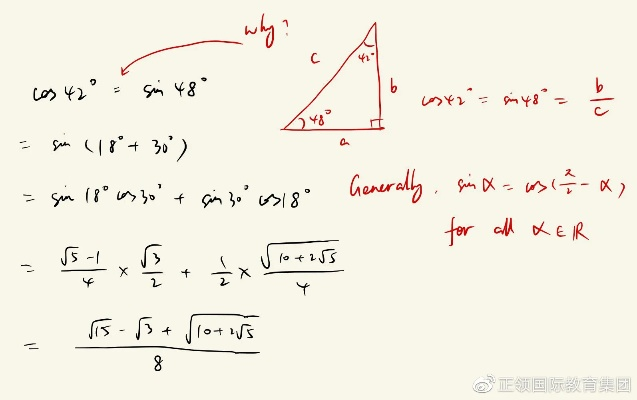 why?
cos 42° = sin 48°
= sin (18° + 30°)
= sin 18° cos 30° + sin 30° cos 18°
= \frac{√5 - 1}{4} × \frac{√3}{2} + \frac{1}{2} × \frac{√(10 + 2√5)}{4}
= \frac{√15 - √3 + √(10 + 2√5)}{8}
c
42°
b
48°
a
cos 42° = sin 48° = \frac{b}{c}
Generally, sin α = cos(\frac{π}{2} - α)
for all α ∈ ℝ
正领国际教育集团